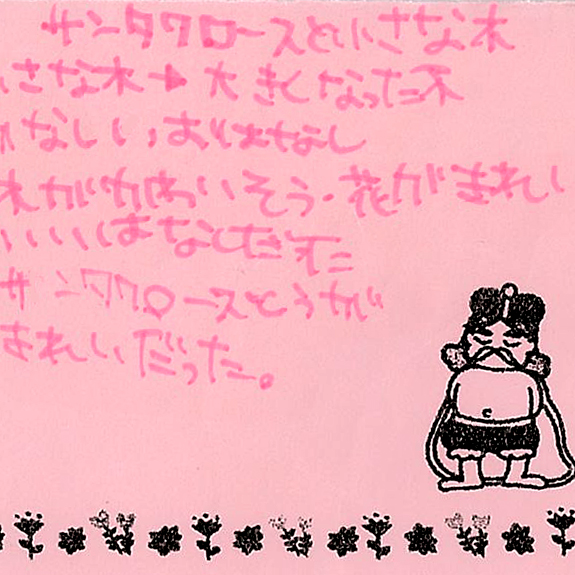 サンタクロースと小さな木
小さな木→大きくなった木
かなしい、おはなし
木がかわいそう・花がきれい
いいはなしだった
サンタクロースとうが
きれいだった。